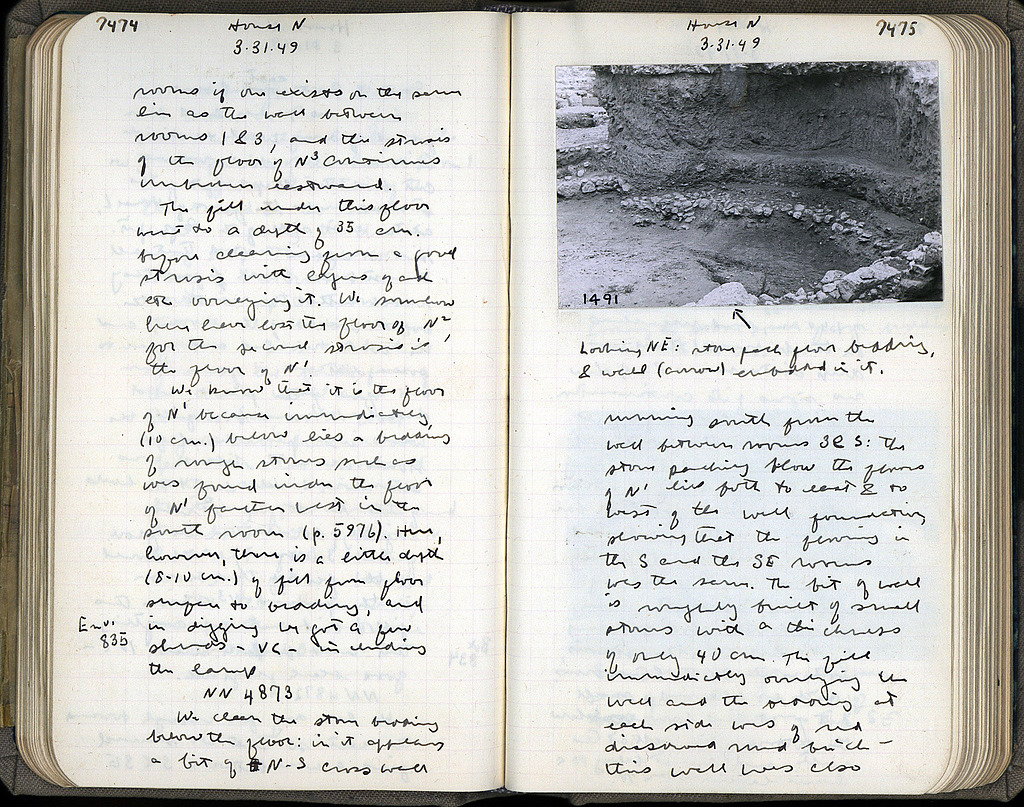 7474
House N
3·31·49
rooms if one exists on the same
line as the wall between
rooms 1 & 3, and the strosis
of the floor of N³ continues
unbroken eastward.
The fill under this floor
went to a depth of 35 cm.
before cleaning from a good
strosis with layers of
overlying it. We somehow
here have lost the floor of N²
for the second strosis is
the floor of N¹.
We know that it is the floor
of N¹ because immediately
(10 cm.) below lies a bedding
of rough stones such as
was found under the floor
of N¹ farther west in the
south room (p. 5976). Here,
however, there is a little depth
(8-10 cm.) of fill from floor
surface to bedding, and
in digging we got a few
sherds - VG - including
the lamp
Env.
835
NN 4873
We clean the stone bedding
below the floor: in it appears
a bit of N-S cross wall
7475
House N
3·31·49
1491
Looking NE: stone pack floor bedding,
& wall (arrow) embedded in it.
running south from the
wall between rooms 3 & S: the
stone packing below the floors
of N¹ lies both to east & to
west of the wall foundation
showing that the flooring in
the S and the SE rooms
was the same. The bit of wall
is roughly built of small
stones with a thickness
of only 40 cm. The fill
immediately overlying the
wall and the bedding at
each side was of red
dissolved mud brick -
this wall was also